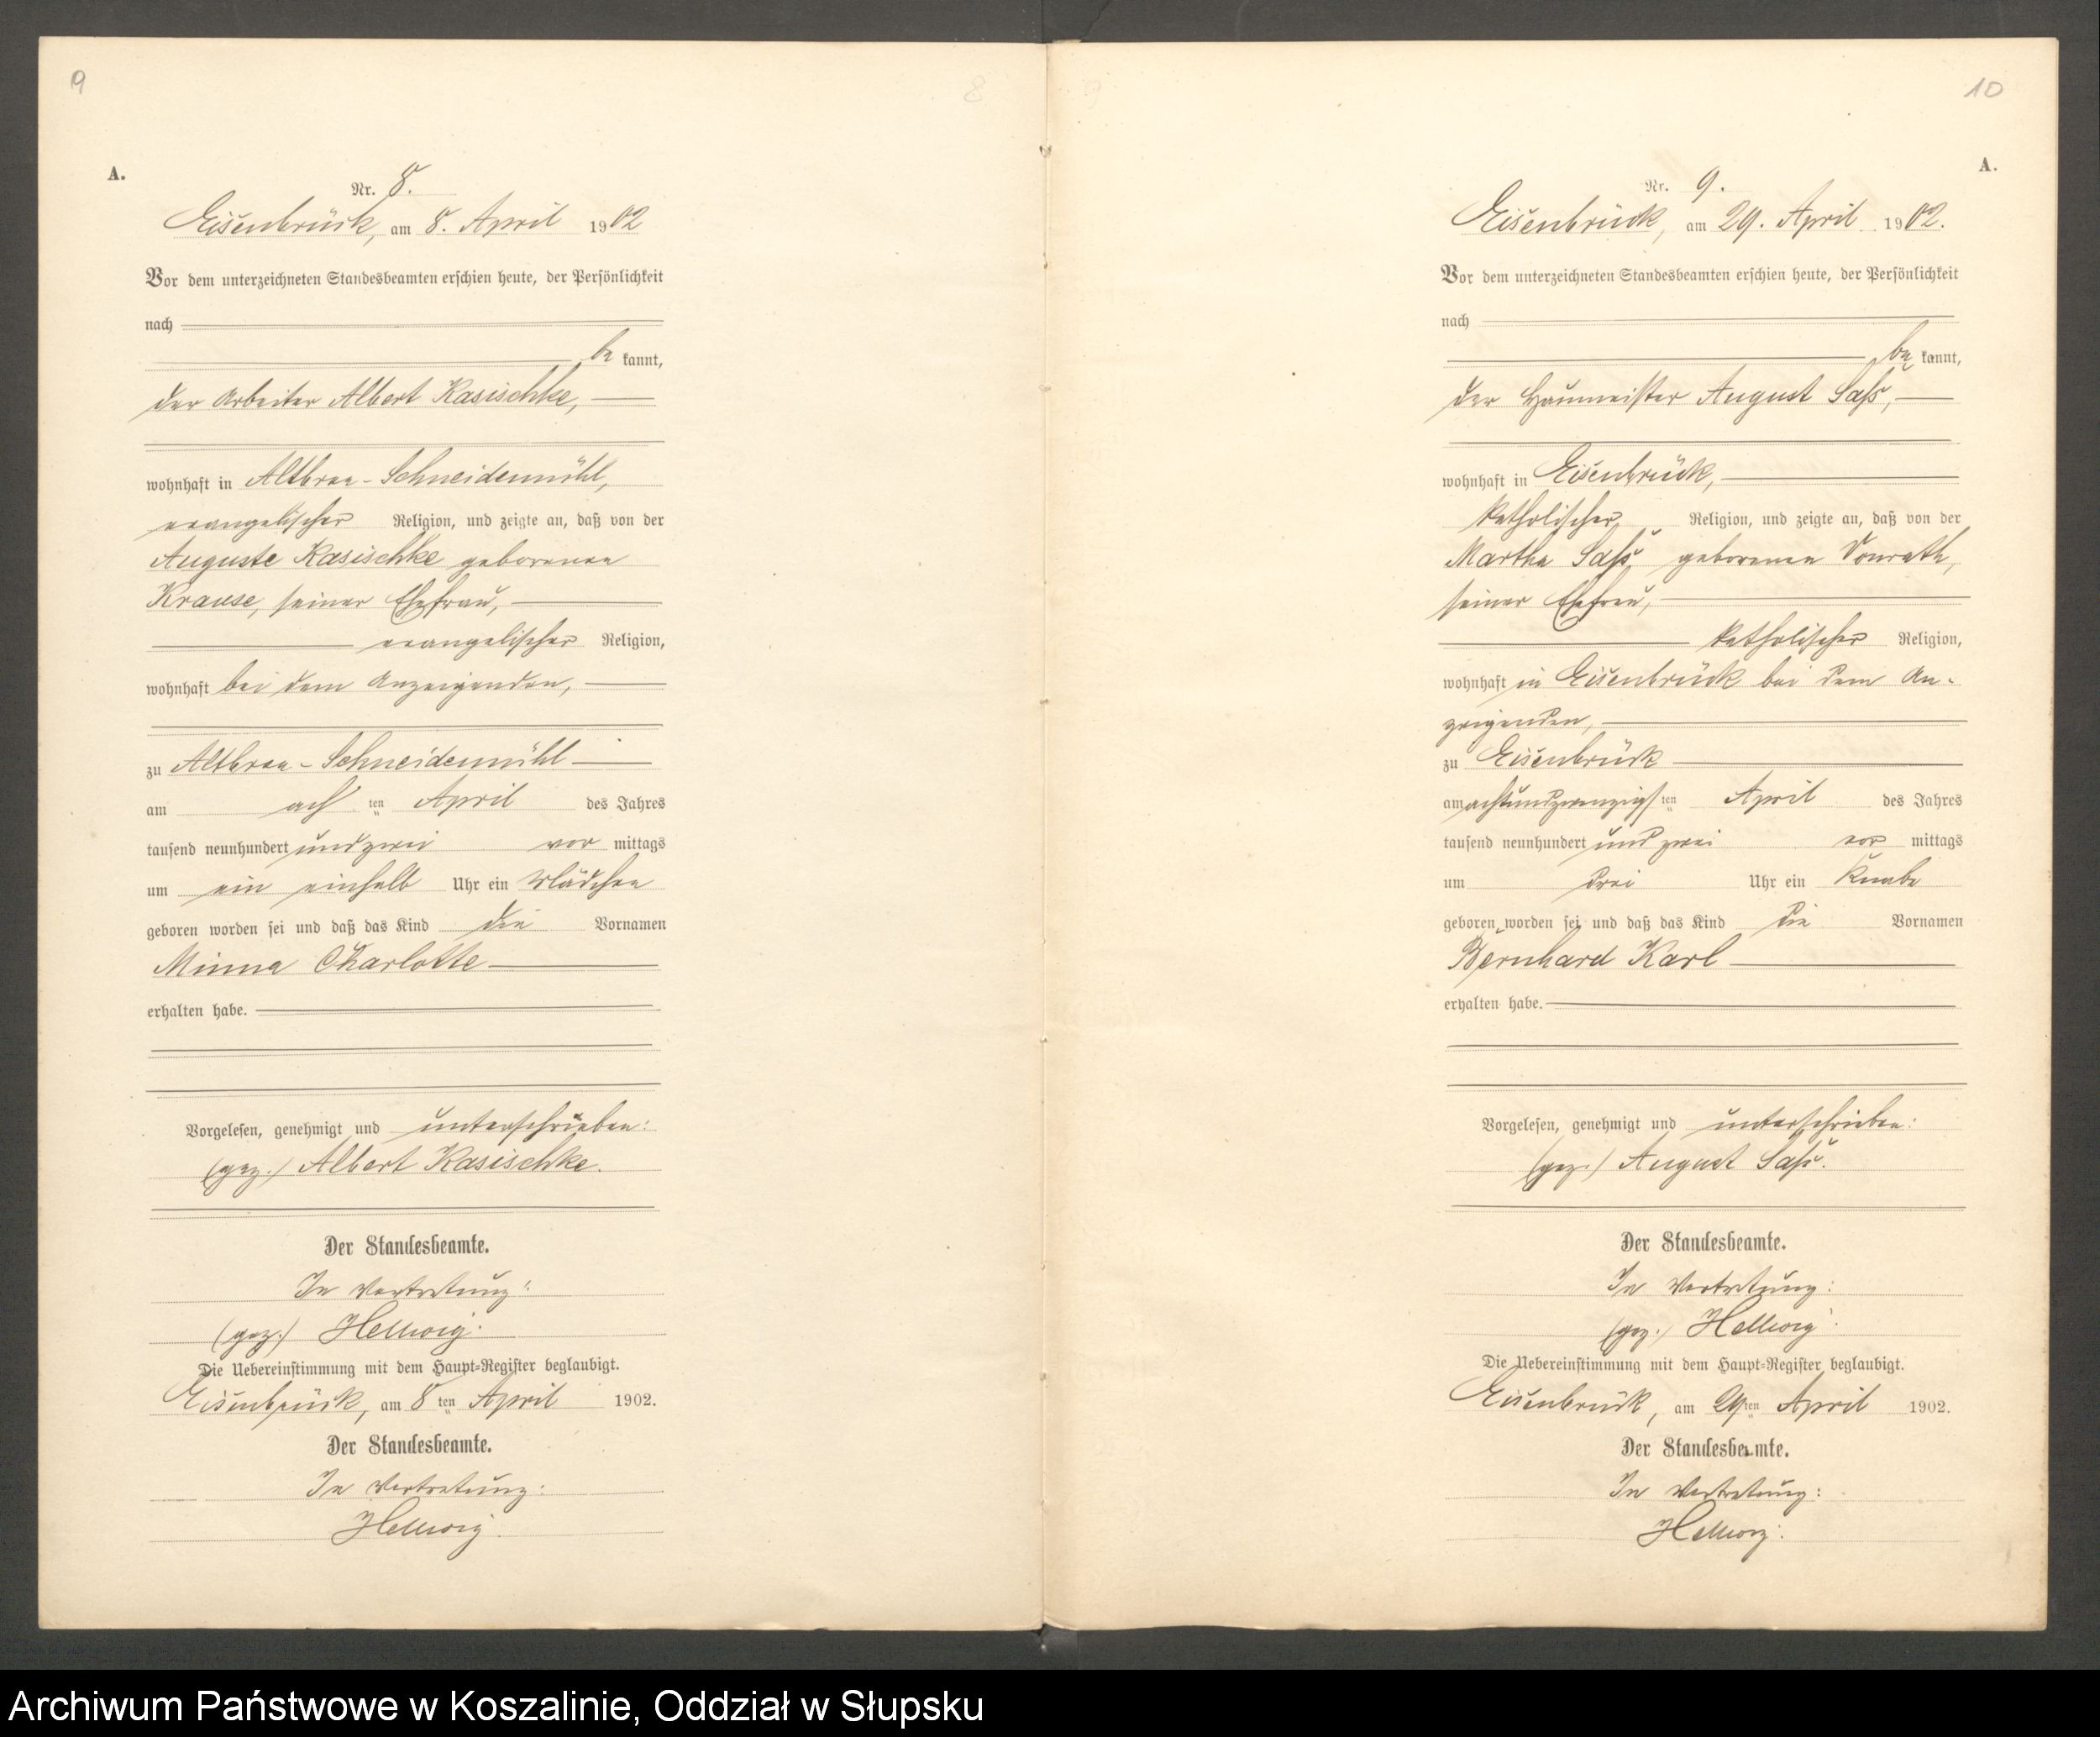 9
8
A.
Nr. 8.
Eisenbrück, am 8. April 1902
Vor dem unterzeichneten Standesbeamten erschien heute, der Persönlichkeit
nach
be kannt,
der Arbeiter Albert Kasischke,
wohnhaft in Altbraa-Schneidemühl,
evangelischer Religion, und zeigte an, daß von der
Auguste Kasischke geborenen
Krause, seiner Ehefrau,
evangelischer Religion,
wohnhaft bei dem Anzeigenden,
zu Altbraa-Schneidemühl
am acht ten April des Jahres
tausend neunhundert und zwei vor mittags
um ein einhalb Uhr ein Mädchen
geboren worden sei und daß das Kind die Vornamen
Minna Charlotte
erhalten habe.
Vorgelesen, genehmigt und unterschrieben:
(gez.) Albert Kasischke.
Der Standesbeamte.
In Vertretung:
(gez.) Hellwig.
Die Uebereinstimmung mit dem Haupt-Register beglaubigt.
Eisenbrück, am 8 ten April 1902.
Der Standesbeamte.
In Vertretung:
Hellwig.
10
A.
Nr. 9.
Eisenbrück, am 29. April 1902.
Vor dem unterzeichneten Standesbeamten erschien heute, der Persönlichkeit
nach
be kannt,
der Haumeister August Saß,
wohnhaft in Eisenbrück,
katholischer Religion, und zeigte an, daß von der
Martha Saß geborenen Vonrath,
seiner Ehefrau,
katholischer Religion,
wohnhaft in Eisenbrück bei dem An-
zeigenden,
zu Eisenbrück
am achtundzwanzigsten April des Jahres
tausend neunhundert und zwei vor mittags
um drei Uhr ein Knabe
geboren worden sei und daß das Kind die Vornamen
Bernhard Karl
erhalten habe.
Vorgelesen, genehmigt und unterschrieben:
(gez.) August Saß.
Der Standesbeamte.
In Vertretung:
(gez.) Hellwig.
Die Uebereinstimmung mit dem Haupt-Register beglaubigt.
Eisenbrück, am 29ten April 1902.
Der Standesbeamte.
In Vertretung:
Hellwig.
Archiwum Państwowe w Koszalinie, Oddział w Słupsku